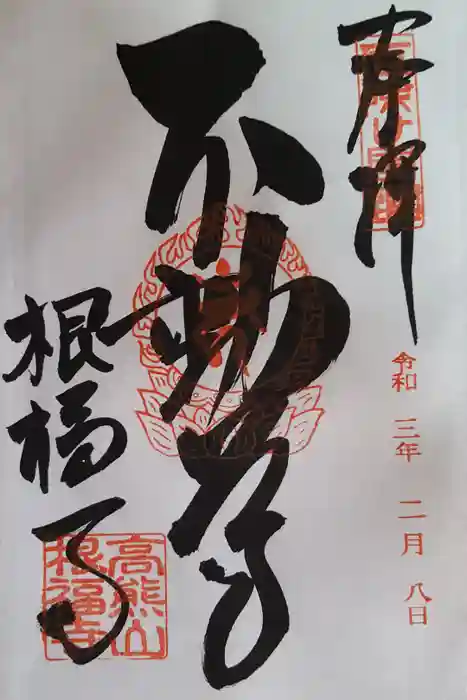 奉拝
令和 三年 二月 八日
不動尊
根福寺
高熊山
根福寺